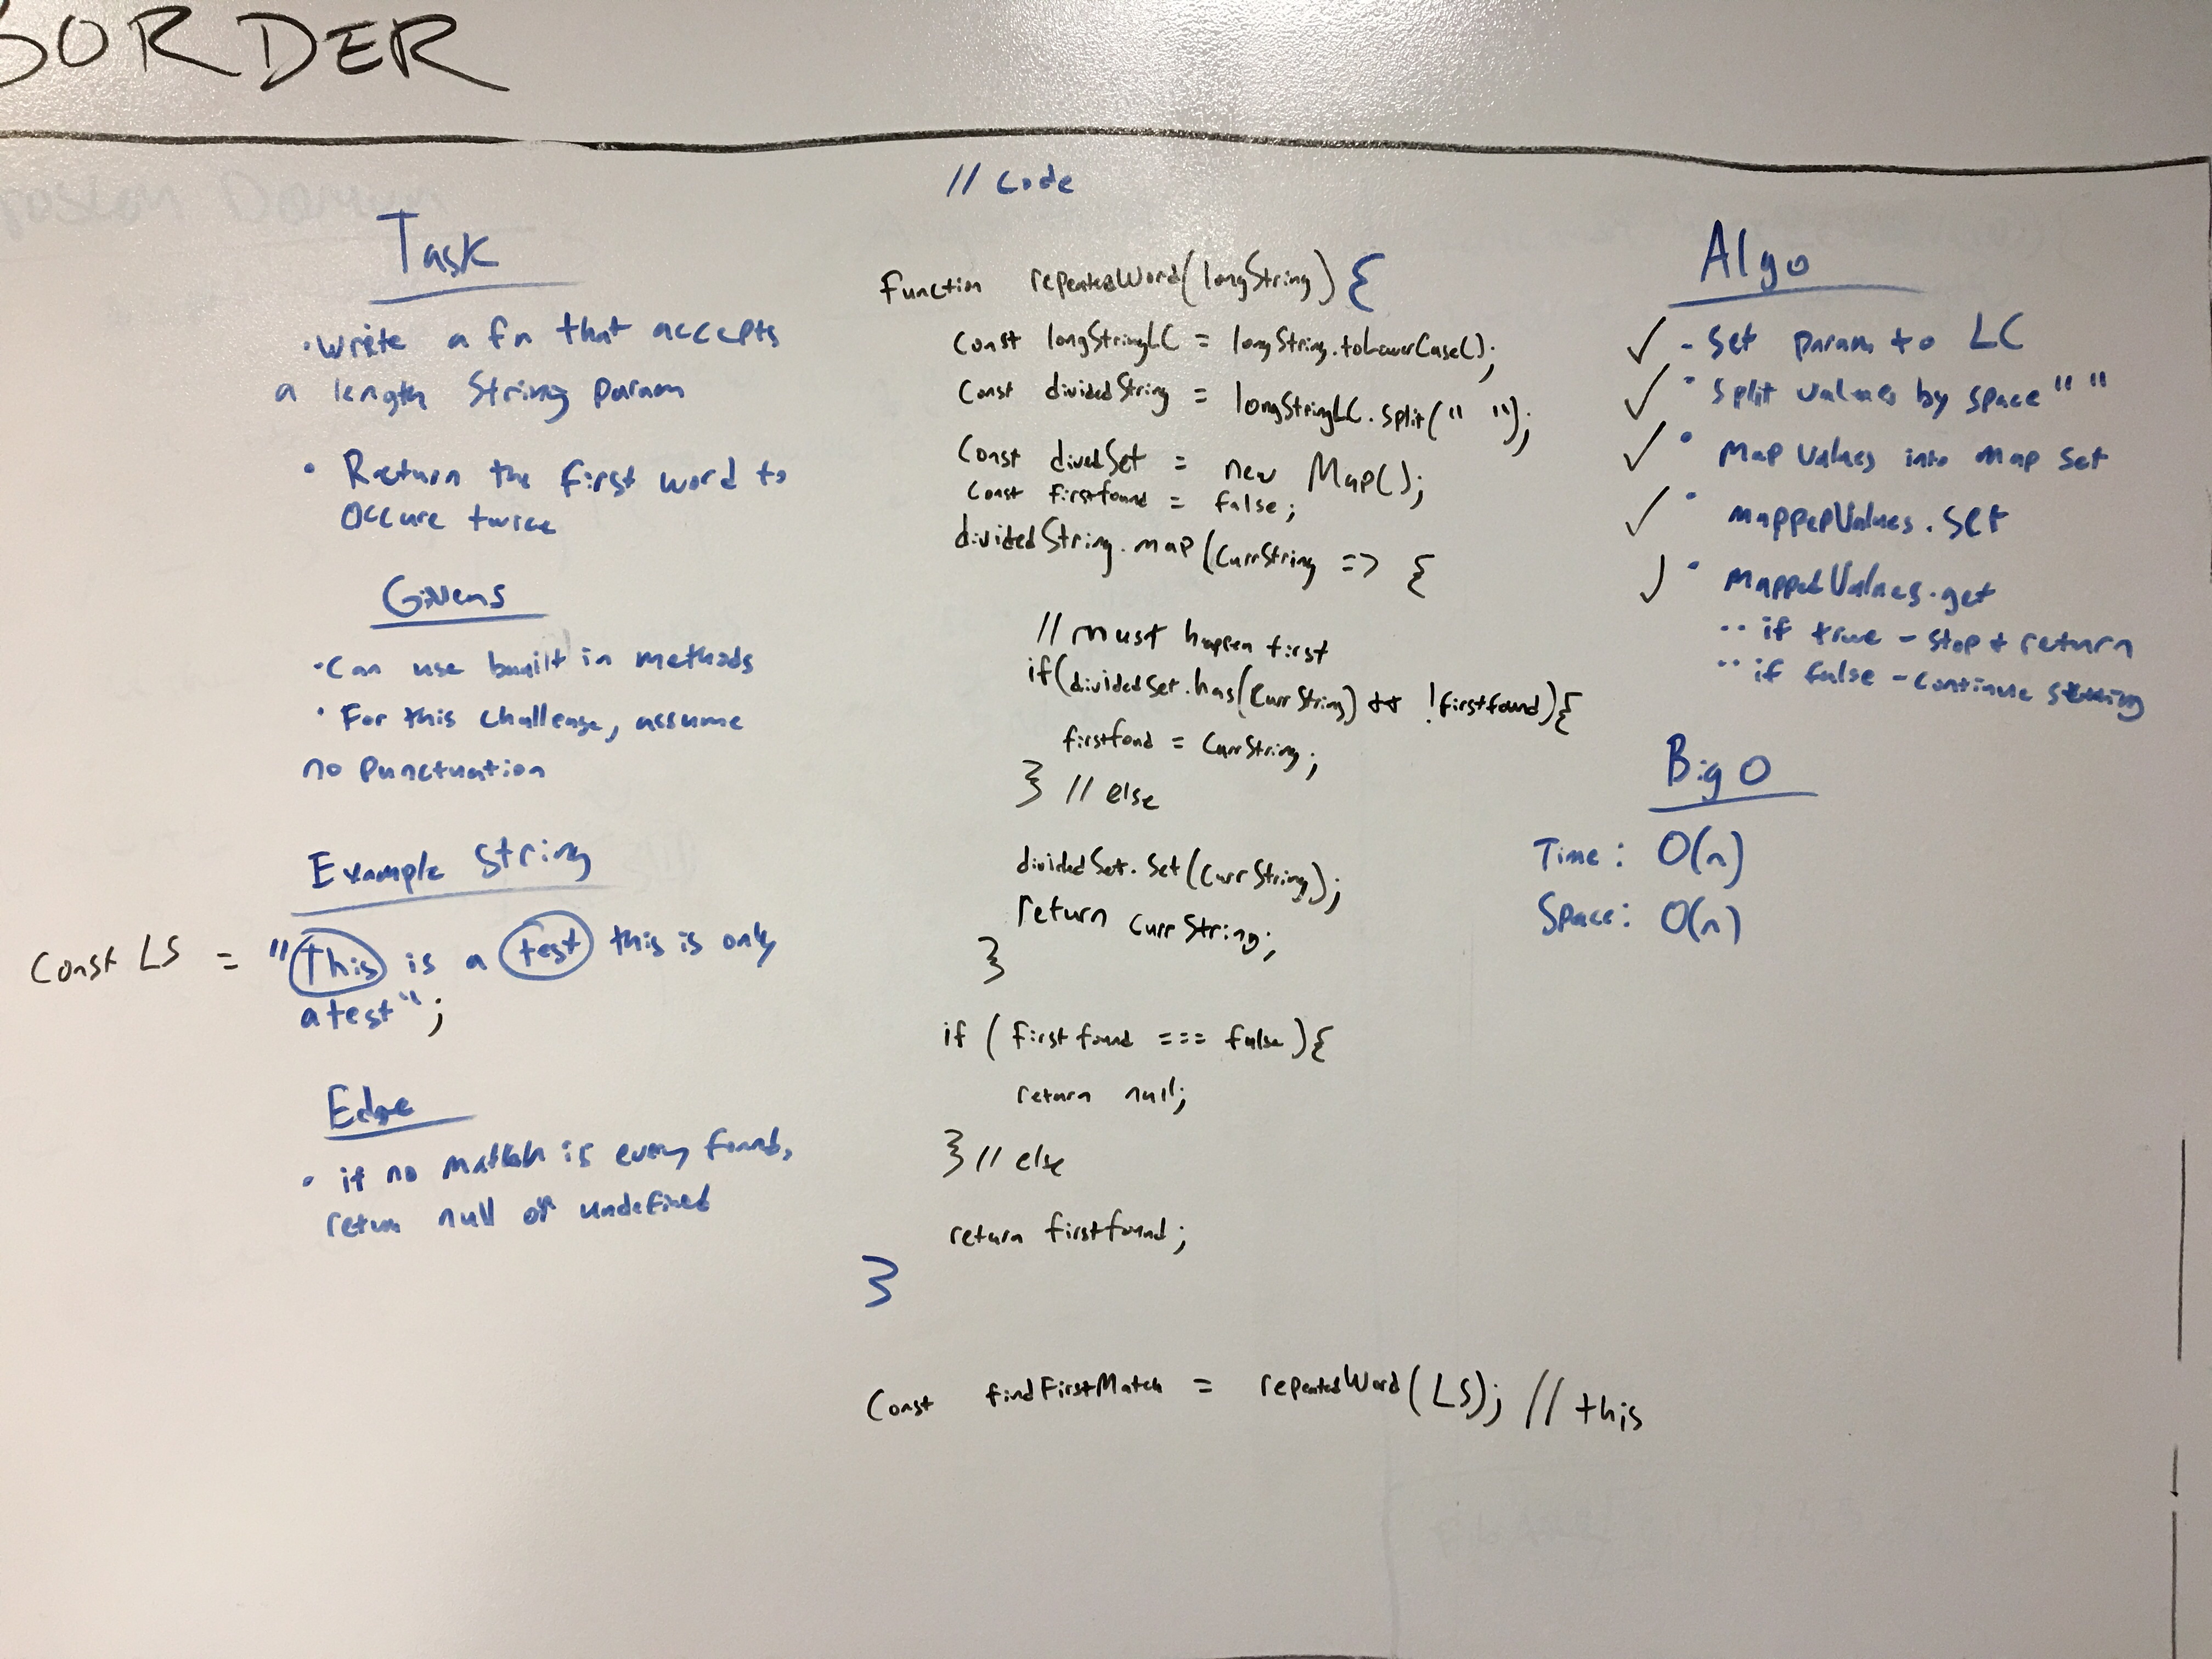 BORDER
Task
• Write a fn that accepts
a length String param
• Return the first word to
occure twice
Givens
• Can use built in methods
• For this challenge, assume
no punctuation
Example String
Const LS = "This is a test this is only
a test";
Edge
• if no match is every found,
return null or undefined
// Code
function repeatedWord(longString) {
Const longStringLC = longString.toLowerCase();
Const dividedString = longStringLC.split(" ");
Const dividedSet = new Map();
Const firstfound = false;
dividedString.map(currString => {
// must happen first
if(dividedSet.has(currString) && !firstfound){
firstfond = CurrString;
} // else
dividedSet.Set(currString);
return currString;
}
if (firstfound === false){
return null;
} // else
return firstfound;
}
Const findFirstMatch = repeatedWord(LS); // this
Algo
✓ - Set param to LC
✓ • Split values by space " "
✓ • Map values into map set
✓ • mappedValues.set
✓ • mappedValues.get
•• if true - stop + return
•• if false - continue setting
Big O
Time: O(n)
Space: O(n)